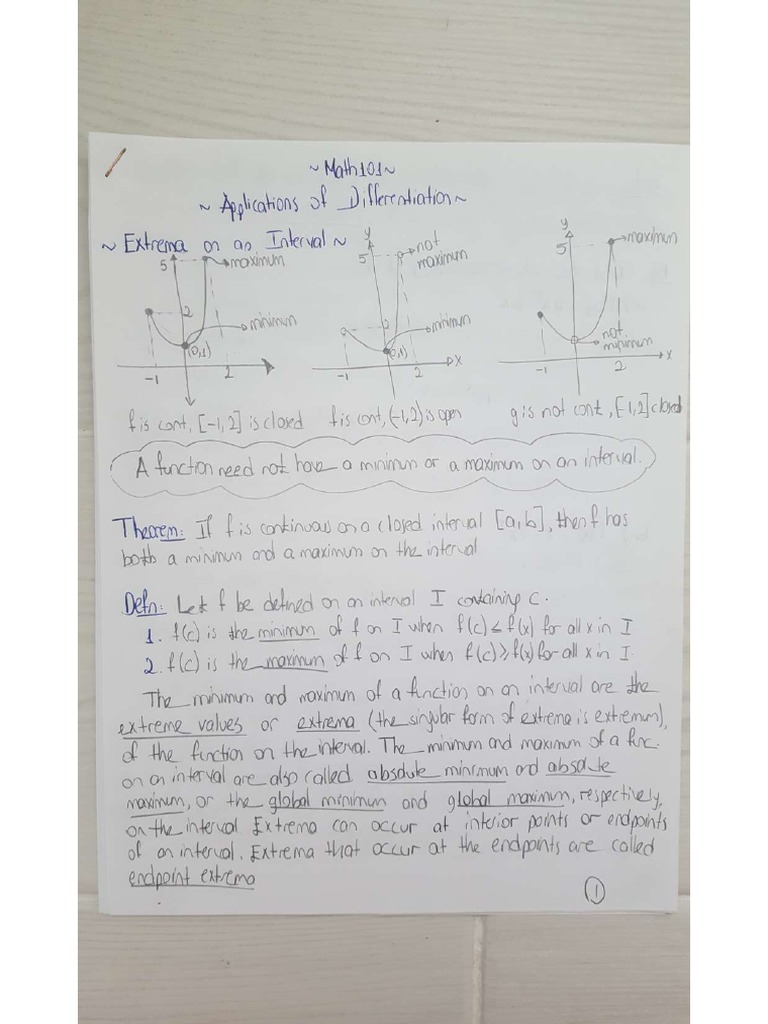 ~Math101~
~ Applications of Differentiation~
~ Extrema on an Interval~
5 maximum
2
minimum
(0,1)
-1 2
y
5 not maximum
2
minimum
(0,1)
-1 2 x
y
5 maximum
not minimum
-1 2 x
f is cont, [-1,2] is closed f is cont, (-1,2) is open g is not cont, [-1,2] closed
A function need not have a minimum or a maximum on an interval.
Theorem: If f is continuous on a closed interval [a,b], then f has
both a minimum and a maximum on the interval
Defn: Let f be defined on an interval I containing c.
1. f(c) is the minimum of f on I when f(c) ≤ f(x) for all x in I
2. f(c) is the maximum of f on I when f(c) ≥ f(x) for all x in I.
The minimum and maximum of a function on an interval are the
extreme values or extrema (the singular form of extrema is extremum),
of the function on the interval. The minimum and maximum of a func.
on an interval are also called absolute minimum and absolute
maximum, or the global minimum and global maximum, respectively,
on the interval. Extrema can occur at interior points or endpoints
of an interval. Extrema that occur at the endpoints are called
endpoint extrema
1